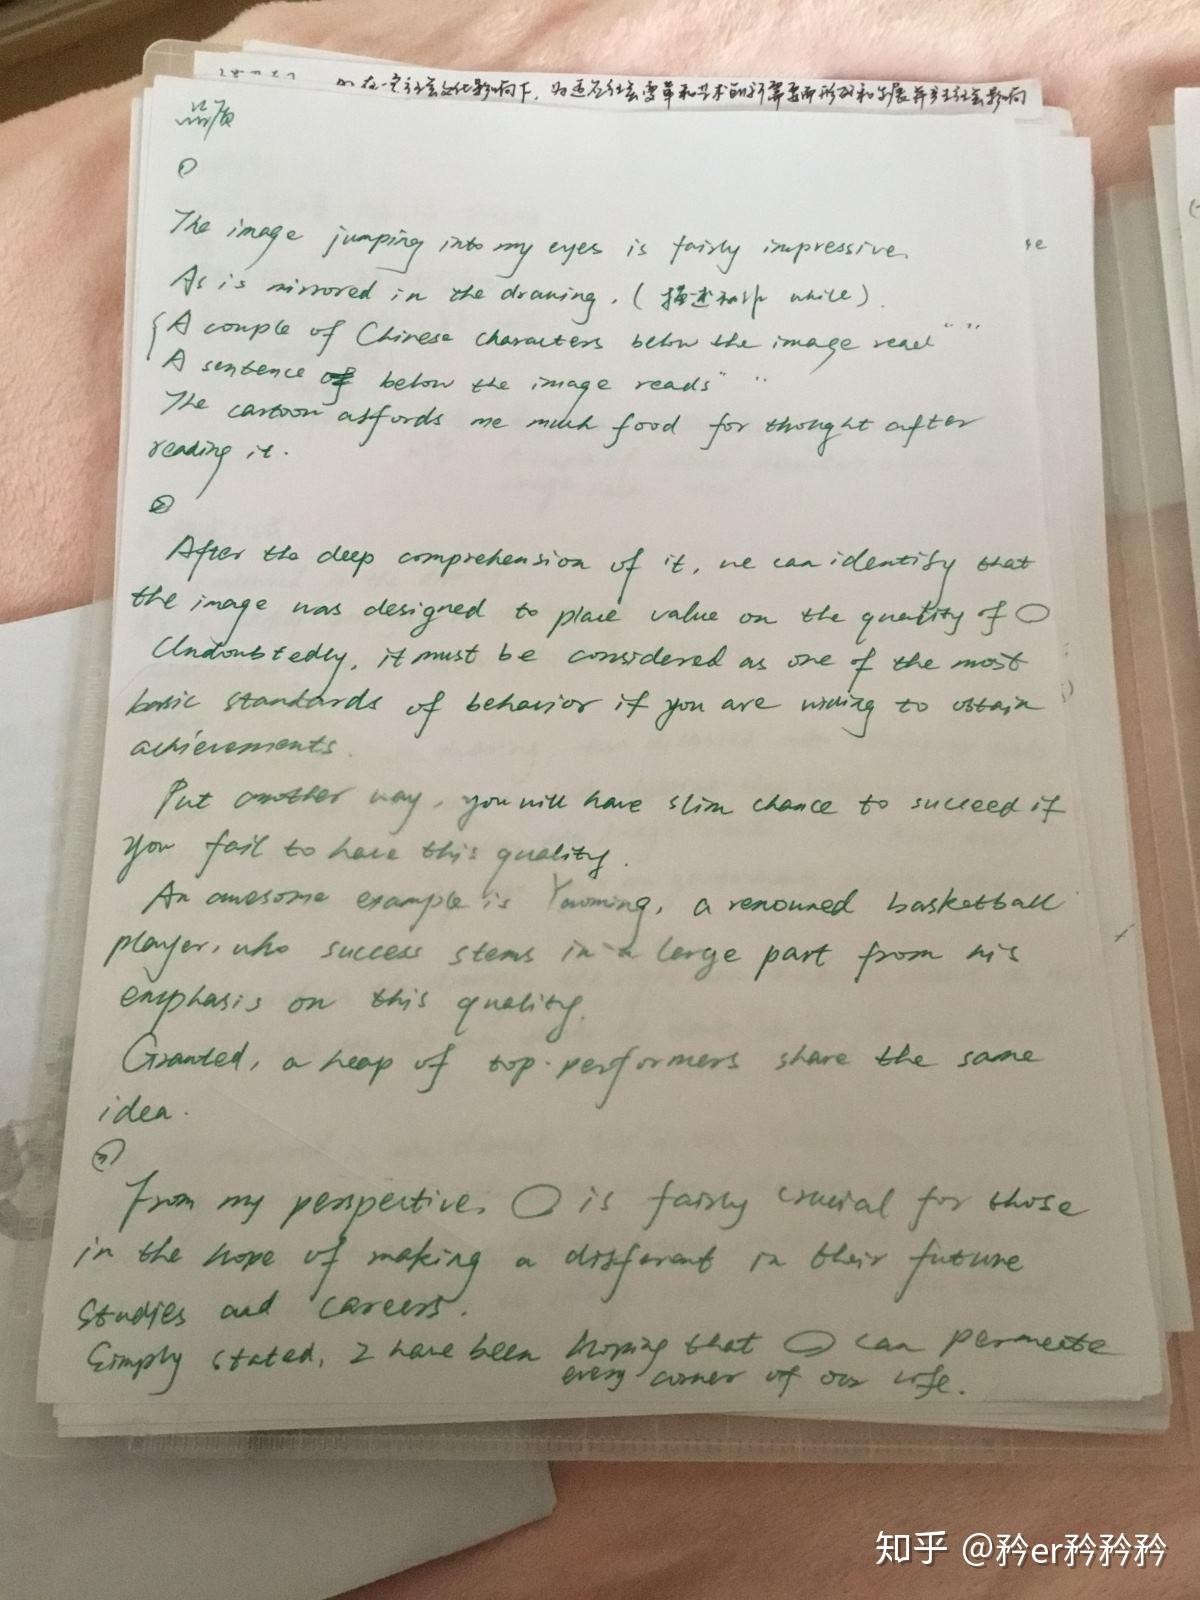 在一定社会文化影响下,为适应社会变革和艺术的新需要而形成和发展并对社会影响
品质
①
The image jumping into my eyes is fairly impressive.
As is mirrored in the drawing. ( 描述 while ).
A couple of Chinese characters below the image read " "
A sentence below the image reads " "
The cartoon affords me much food for thought after
reading it.
②
After the deep comprehension of it, we can identify that
the image was designed to place value on the quality of ○
Undoubtedly, it must be considered as one of the most
basic standards of behavior if you are willing to obtain
achievements.
Put another way, you will have slim chance to succeed if
you fail to have this quality.
An awesome example is Yaoming, a renouned basketball
player, who success stems in a large part from his
emphasis on this quality.
Granted, a heap of top-performers share the same
idea.
③
From my perspective, ○ is fairly crucial for those
in the hope of making a different in their future
studies and careers.
Simply stated, I have been hoping that ○ can permeate
every corner of our life.
知乎 @矜er矜矜矜